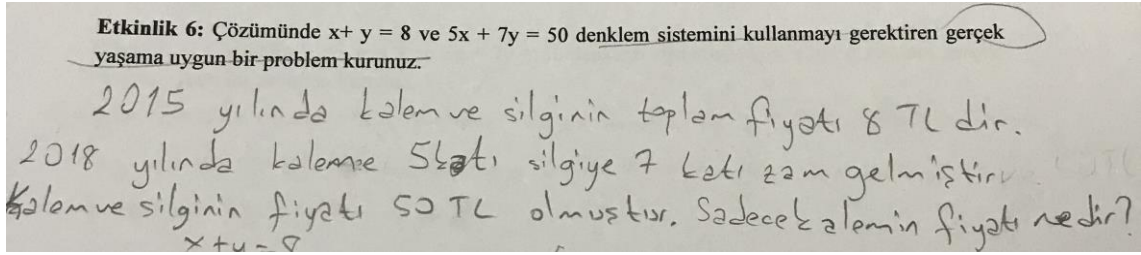 Etkinlik 6: Çözümünde x+ y = 8 ve 5x + 7y = 50 denklem sistemini kullanmayı gerektiren gerçek
yaşama uygun bir problem kurunuz.
2015 yılında kalem ve silginin toplam fiyatı 8 TL dir.
2018 yılında kaleme 5 katı silgiye 7 katı zam gelmiştir.
Kalem ve silginin fiyatı 50 TL olmuştur. Sadece kalemin fiyatı nedir?
x+y=8